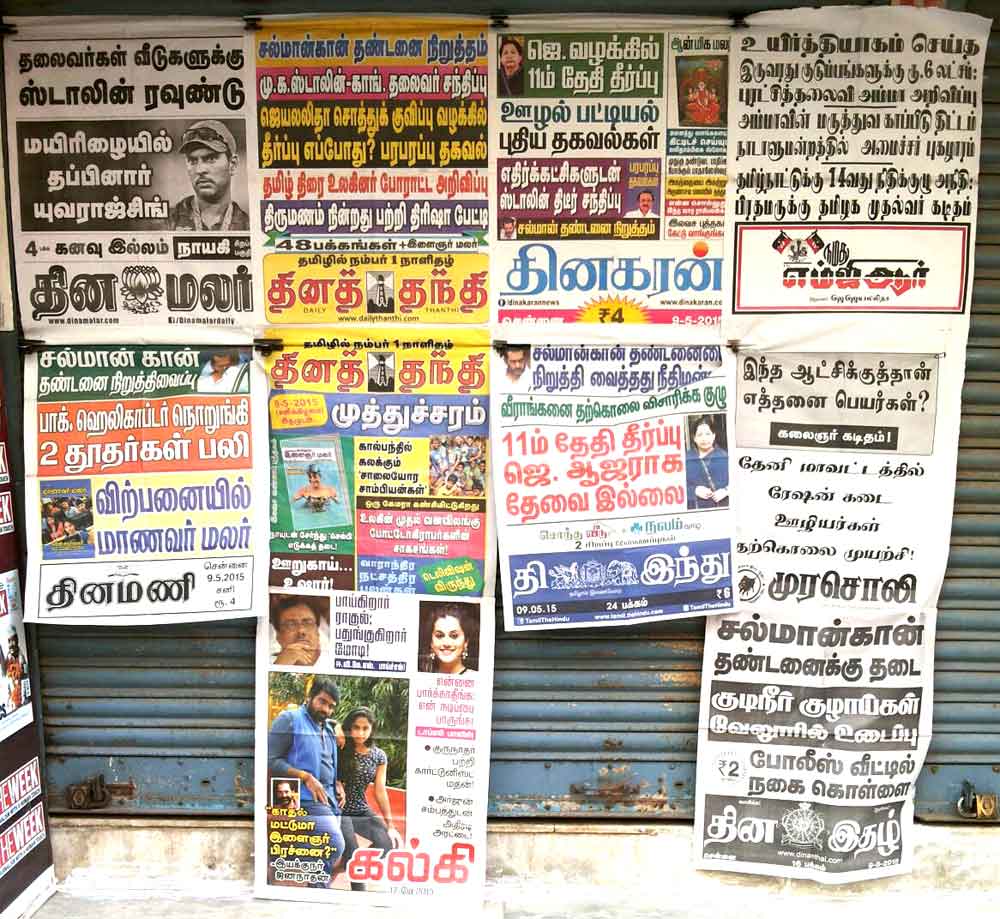 தலைவர்கள் வீடுகளுக்கு
ஸ்டாலின் ரவுண்டு
மயிரிழையில்
தப்பினார்
யுவராஜ்சிங்
4 கனவு இல்லம் நாயகி
தின மலர்
www.dinamalar.com
சல்மான்கான் தண்டனை நிறுத்தம்
மு.க.ஸ்டாலின்-காங். தலைவர் சந்திப்பு
ஜெயலலிதா சொத்துக் குவிப்பு வழக்கில்
தீர்ப்பு எப்போது? பரபரப்பு தகவல்
தமிழ் திரை உலகினர் போராட்ட அறிவிப்பு
திருமணம் நின்றது பற்றி திரிஷா பேட்டி
48 பக்கங்கள் + இளைஞர் மலர்
தமிழில் நம்பர் 1 நாளிதழ்
தினத் தந்தி
DAILY THANTHI
www.dailythanthi.com
ஜெ. வழக்கில்
11ம் தேதி தீர்ப்பு
ஊழல் பட்டியல்
புதிய தகவல்கள்
எதிர்க்கட்சிகளுடன்
ஸ்டாலின் திடீர் சந்திப்பு
சல்மான்கான் தண்டனை நிறுத்தம்
ஆன்மிக மலர்
பரபரப்பு
தினகரன்
/dinakarannews
www.dinakaran.co
சென்னை
₹4
9-5-2015
உயிர்த்தியாகம் செய்த
இருவரது குடும்பங்களுக்கு ரூ.6 லட்சம்:
புரட்சித்தலைவி அம்மா அறிவிப்பு
அம்மாவின் மருத்துவ காப்பீடு திட்டம்
நாடாளுமன்றத்தில் அமைச்சர் புகழாரம்
தமிழ்நாட்டுக்கு 14வது நிதிக்குழு அநீதி:
பிரதமருக்கு தமிழக முதல்வர் கடிதம்
நமது
எம்ஜிஆர்
சல்மான் கான்
தண்டனை நிறுத்திவைப்பு
பாக். ஹெலிகாப்டர் நொறுங்கி
2 தூதர்கள் பலி
விற்பனையில்
மாணவர் மலர்
தினமணி
சென்னை
9.5.2015
சனி
ரூ. 4
தமிழில் நம்பர் 1 நாளிதழ்
தினத் தந்தி
9-5-2015
முத்துச்சரம்
இளைஞர் மலர்
கால்பந்தில்
கலக்கும்
'சாலையோர
சாம்பியன்கள்'
ஒரு கேமரா கண்விட்டுகிறது
உலகின் முதல் வனவிலங்கு
போட்டோகிராபர்களின்
சாகசங்கள்!
ஊறுகாய்...
உஷார்!
வாராந்திர
நட்சத்திர
பலன்கள்
டெலிவிஷன்
விருந்து
சல்மான்கான் தண்டனையை
நிறுத்தி வைத்தது நீதிமன்
வீராங்கனை தற்கொலை விசாரிக்க குழு
11ம் தேதி தீர்ப்பு
ஜெ. ஆஜராக
தேவை இல்லை
சொந்த வீடு நலம் வாழ
2 சிறப்பு இணைப்புகள்
தி இந்து
09.05.15
24 பக்கம்
₹6
TamilTheHindu
www.tamil.thehindu.com
TamilTheHindu
இந்த ஆட்சிக்குத்தான்
எத்தனை பெயர்கள்?
கலைஞர் கடிதம்!
தேனி மாவட்டத்தில்
ரேஷன் கடை
ஊழியர்கள்
தற்கொலை முயற்சி!
முரசொலி
பாய்கிறார்
ராகுல்;
பதுங்குகிறார்
மோடி!
என்னை
பார்க்காதீங்க;
என் நடிப்பை
பாருங்க!
டாப்ஸி பாலிஸி
குருநாதர்
பற்றி
கார்ட்டூனிஸ்ட்
மதன்!
அர்ஜுன்
சம்பத்துடன்
அதிரடி
அரட்டை!
"காதல்
மட்டுமா
இளைஞர்
பிரச்னை?"
-இயக்குனர்
ஜனநாதன்
கல்கி
17 மே 2015
சல்மான்கான்
தண்டனைக்கு தடை
குடிநீர் குழாய்கள்
வேலூரில் உடைப்பு
₹2
போலீஸ் வீட்டில்
நகை கொள்ளை
தின இதழ்
www.dinaithal.com
சென்னை
16 பக்கம்
9-5-2015
THE WEEK
THE WEEK